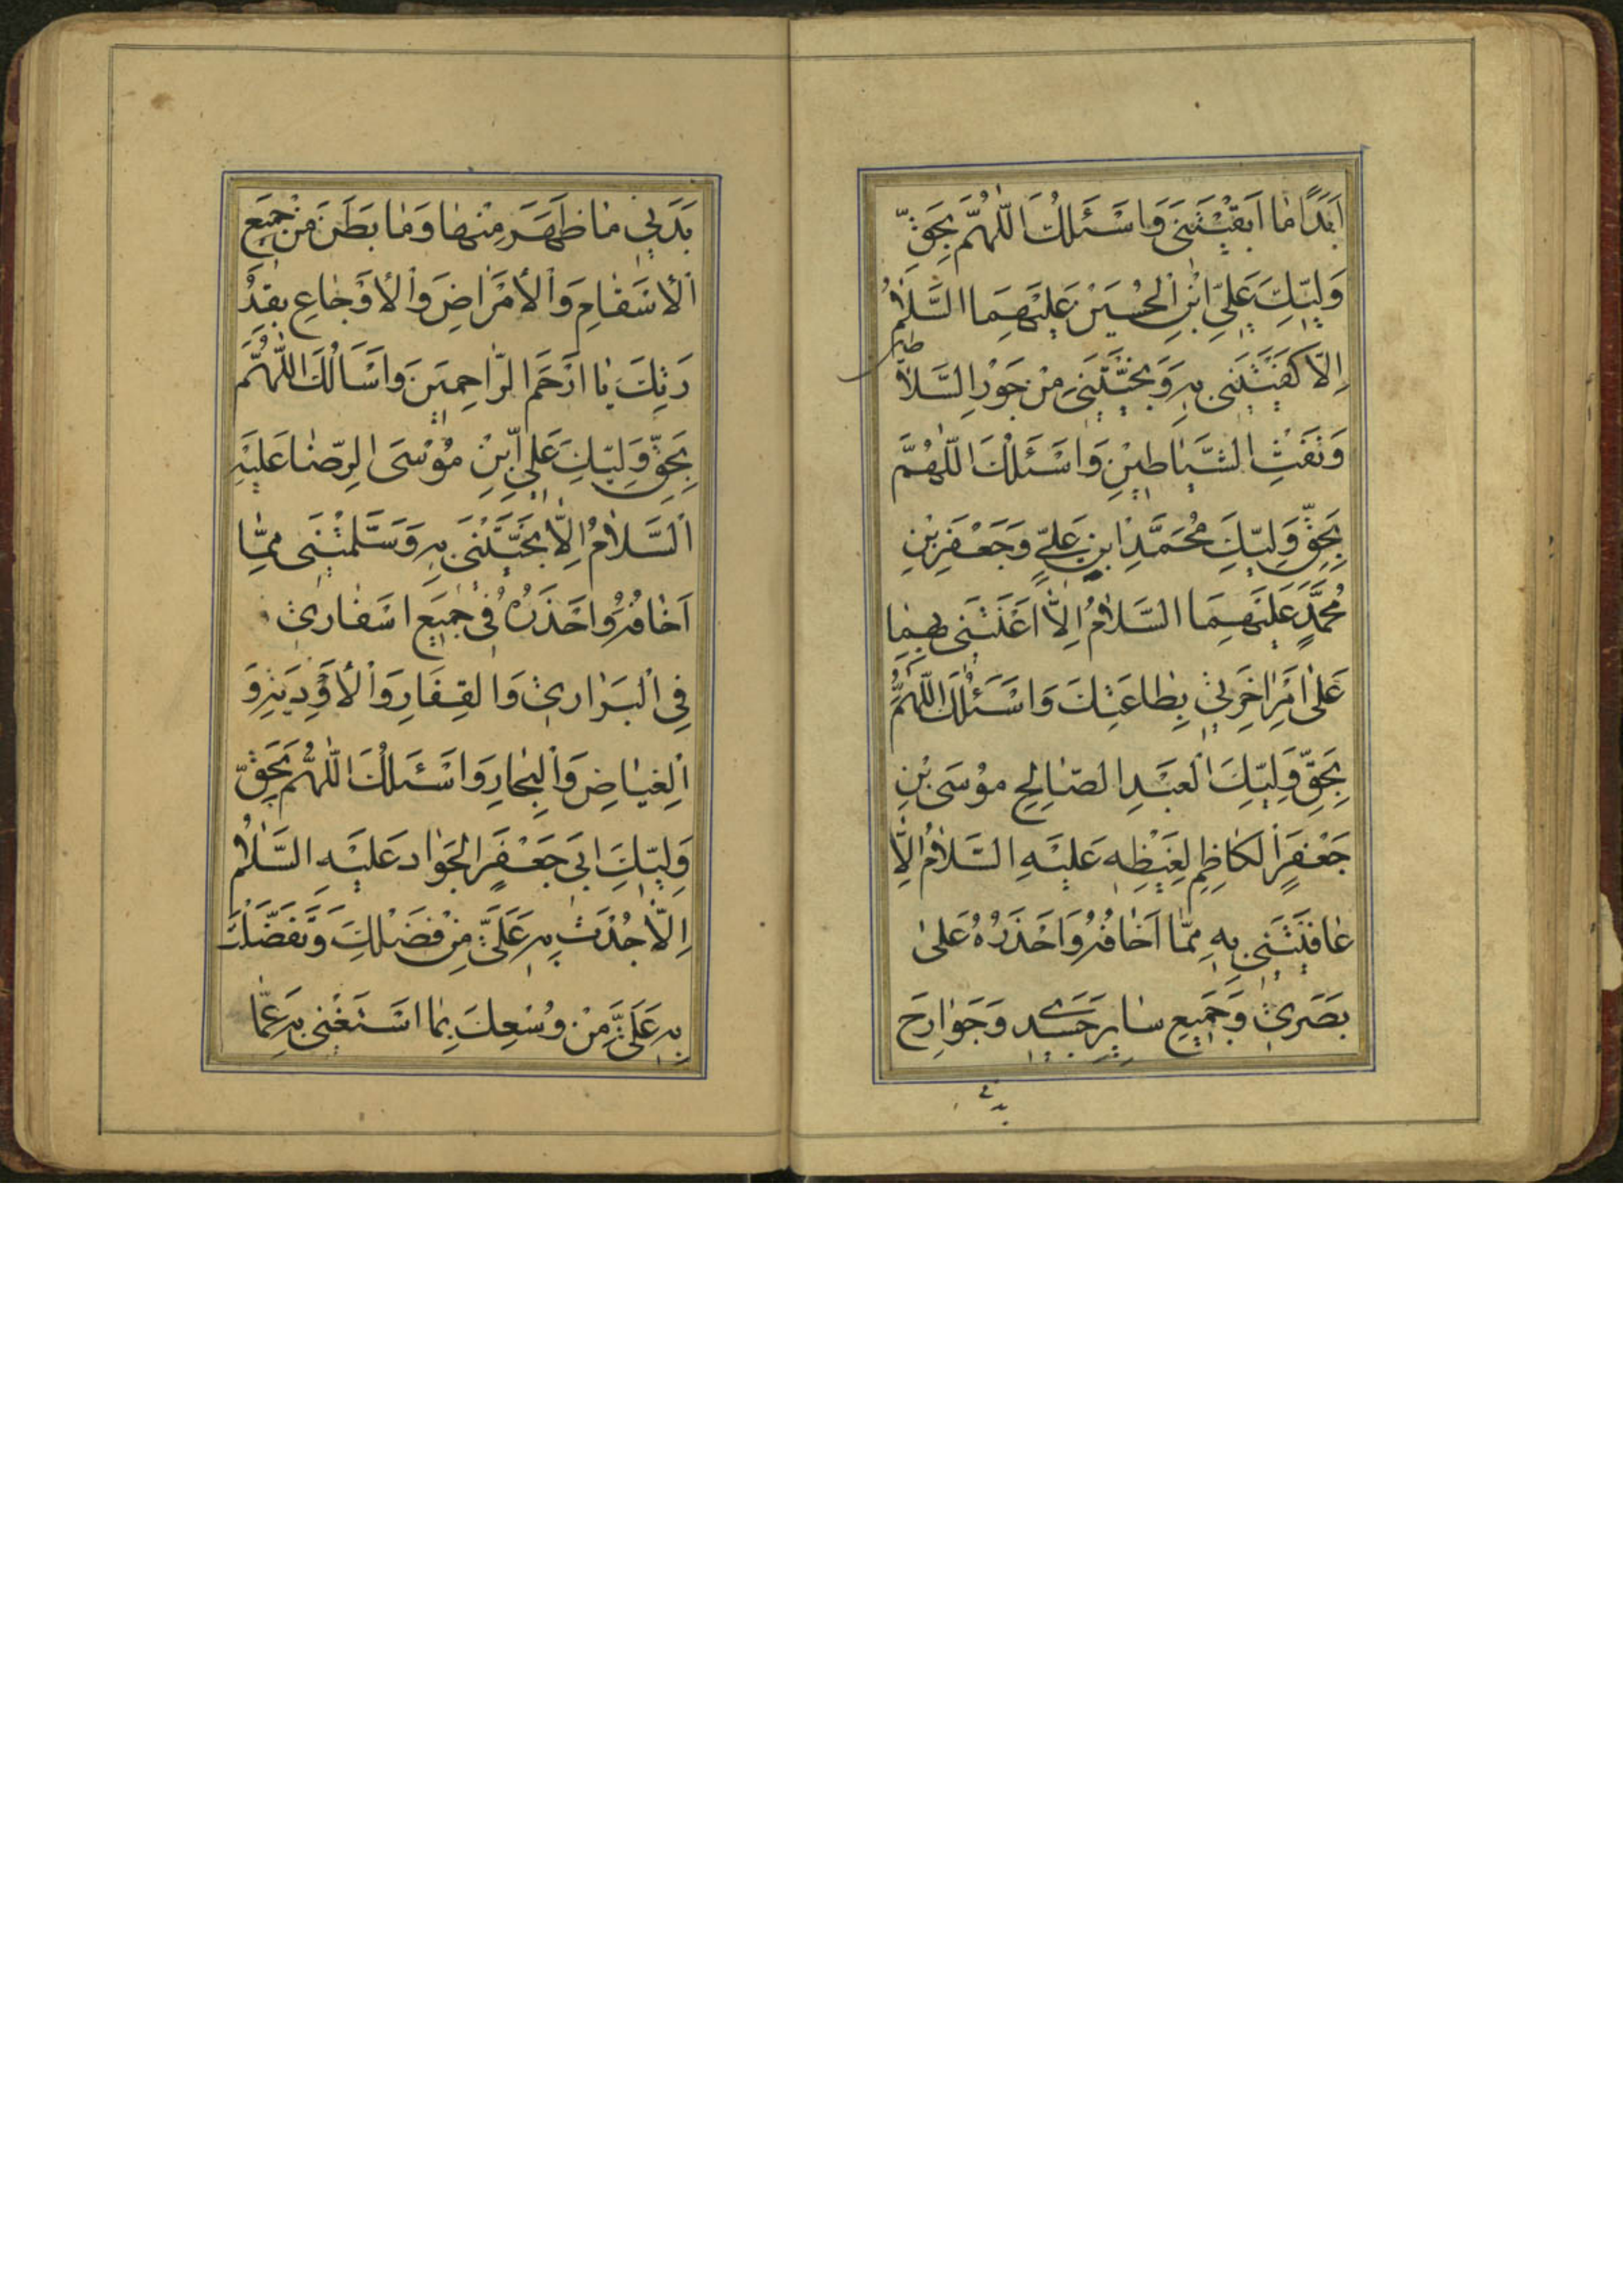 اَبَدًا مٰا اَبْقَيْتَنَىٖ وَاَسْئَلُكَ اللّٰهُمَّ بِحَقِّ
وَلِيِّكَ عَلِيِّ ابْنِ الْحُسَيْنِ عَلَيْهِمَا السَّلٰامُ
اِلّٰا كَفَيْتَنىٖ بِهِ وَنَجَّيْتَنىٖ مِنْ جَوْرِ السَّلٰا
طين
وَنَفْثِ الشَّيٰاطيٖنِ وَاَسْئَلُكَ اللّٰهُمَّ
بِحَقِّ وَلِيِّكَ مُحَمَّدِ ابْنِ عَلِيٍّ وَجَعْفَرِ بْنِ
مُحَمَّدٍ عَلَيْهِمَا السَّلٰامُ اِلّٰا اَعَنْتَنىٖ بِهِمٰا
عَلىٰ اَمْرِ اٰخِرَتىٖ بِطٰاعَتِكَ وَاَسْئَلُكَ اللّٰهُمَّ
بِحَقِّ وَلِيِّكَ الْعَبْدِ الصّٰالِحِ مُوْسَى بْنِ
جَعْفَرٍ الْكٰاظِمِ لِغَيْظِهٖ عَلَيْهِ السَّلٰامُ اِلّٰا
عٰافَيْتَنىٖ بِهٖ مِمّٰا اَخٰافُهُ وَاَحْذَرُهُ عَلىٰ
بَصَرىٖ وَجَميٖعِ سٰايِرِ جَسَدىٖ وَجَوٰارِحَ
بَدَنىٖ مٰا ظَهَرَ مِنْهٰا وَمٰا بَطَنَ مِنْ جَميٖعِ
الْاَسْقٰامِ وَالْاَمْرٰاضِ وَالْاَوْجٰاعِ بِقُدْ
رَتِكَ يٰا اَرْحَمَ الرّٰاحِميٖنَ وَاَسْاَلُكَ اللّٰهُمَّ
بِحَقِّ وَلِيِّكَ عَلِيِّ بْنِ مُوْسَى الرِّضٰا عَلَيْهِ
السَّلٰامُ اِلّٰا نَجَّيْتَنىٖ بِهِ وَسَلَّمْتَنىٖ مِمّٰا
اَخٰافُهُ وَاَحْذَرُهُ فىٖ جَميٖعِ اَسْفٰارىٖ
فِي الْبَرٰارىٖ وَالْقِفٰارِ وَالْاَوْدِيَةِ وَ
الْغِيٰاضِ وَالْبِحٰارِ وَاَسْئَلُكَ اللّٰهُمَّ بِحَقِّ
وَلِيِّكَ اَبىٖ جَعْفَرٍ الْجَوٰادِ عَلَيْهِ السَّلٰامُ
اِلّٰا جُدْتَ بِهِ عَلَيَّ مِنْ فَضْلِكَ وَتَفَضَّلْتَ
بِهِ عَلَيَّ مِنْ وُسْعِكَ بِمٰا اَسْتَغْنىٖ بِهِ عَمّٰا